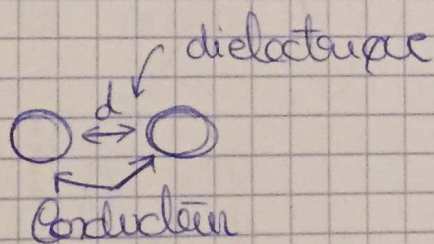 dielectrique
d
Conducteur